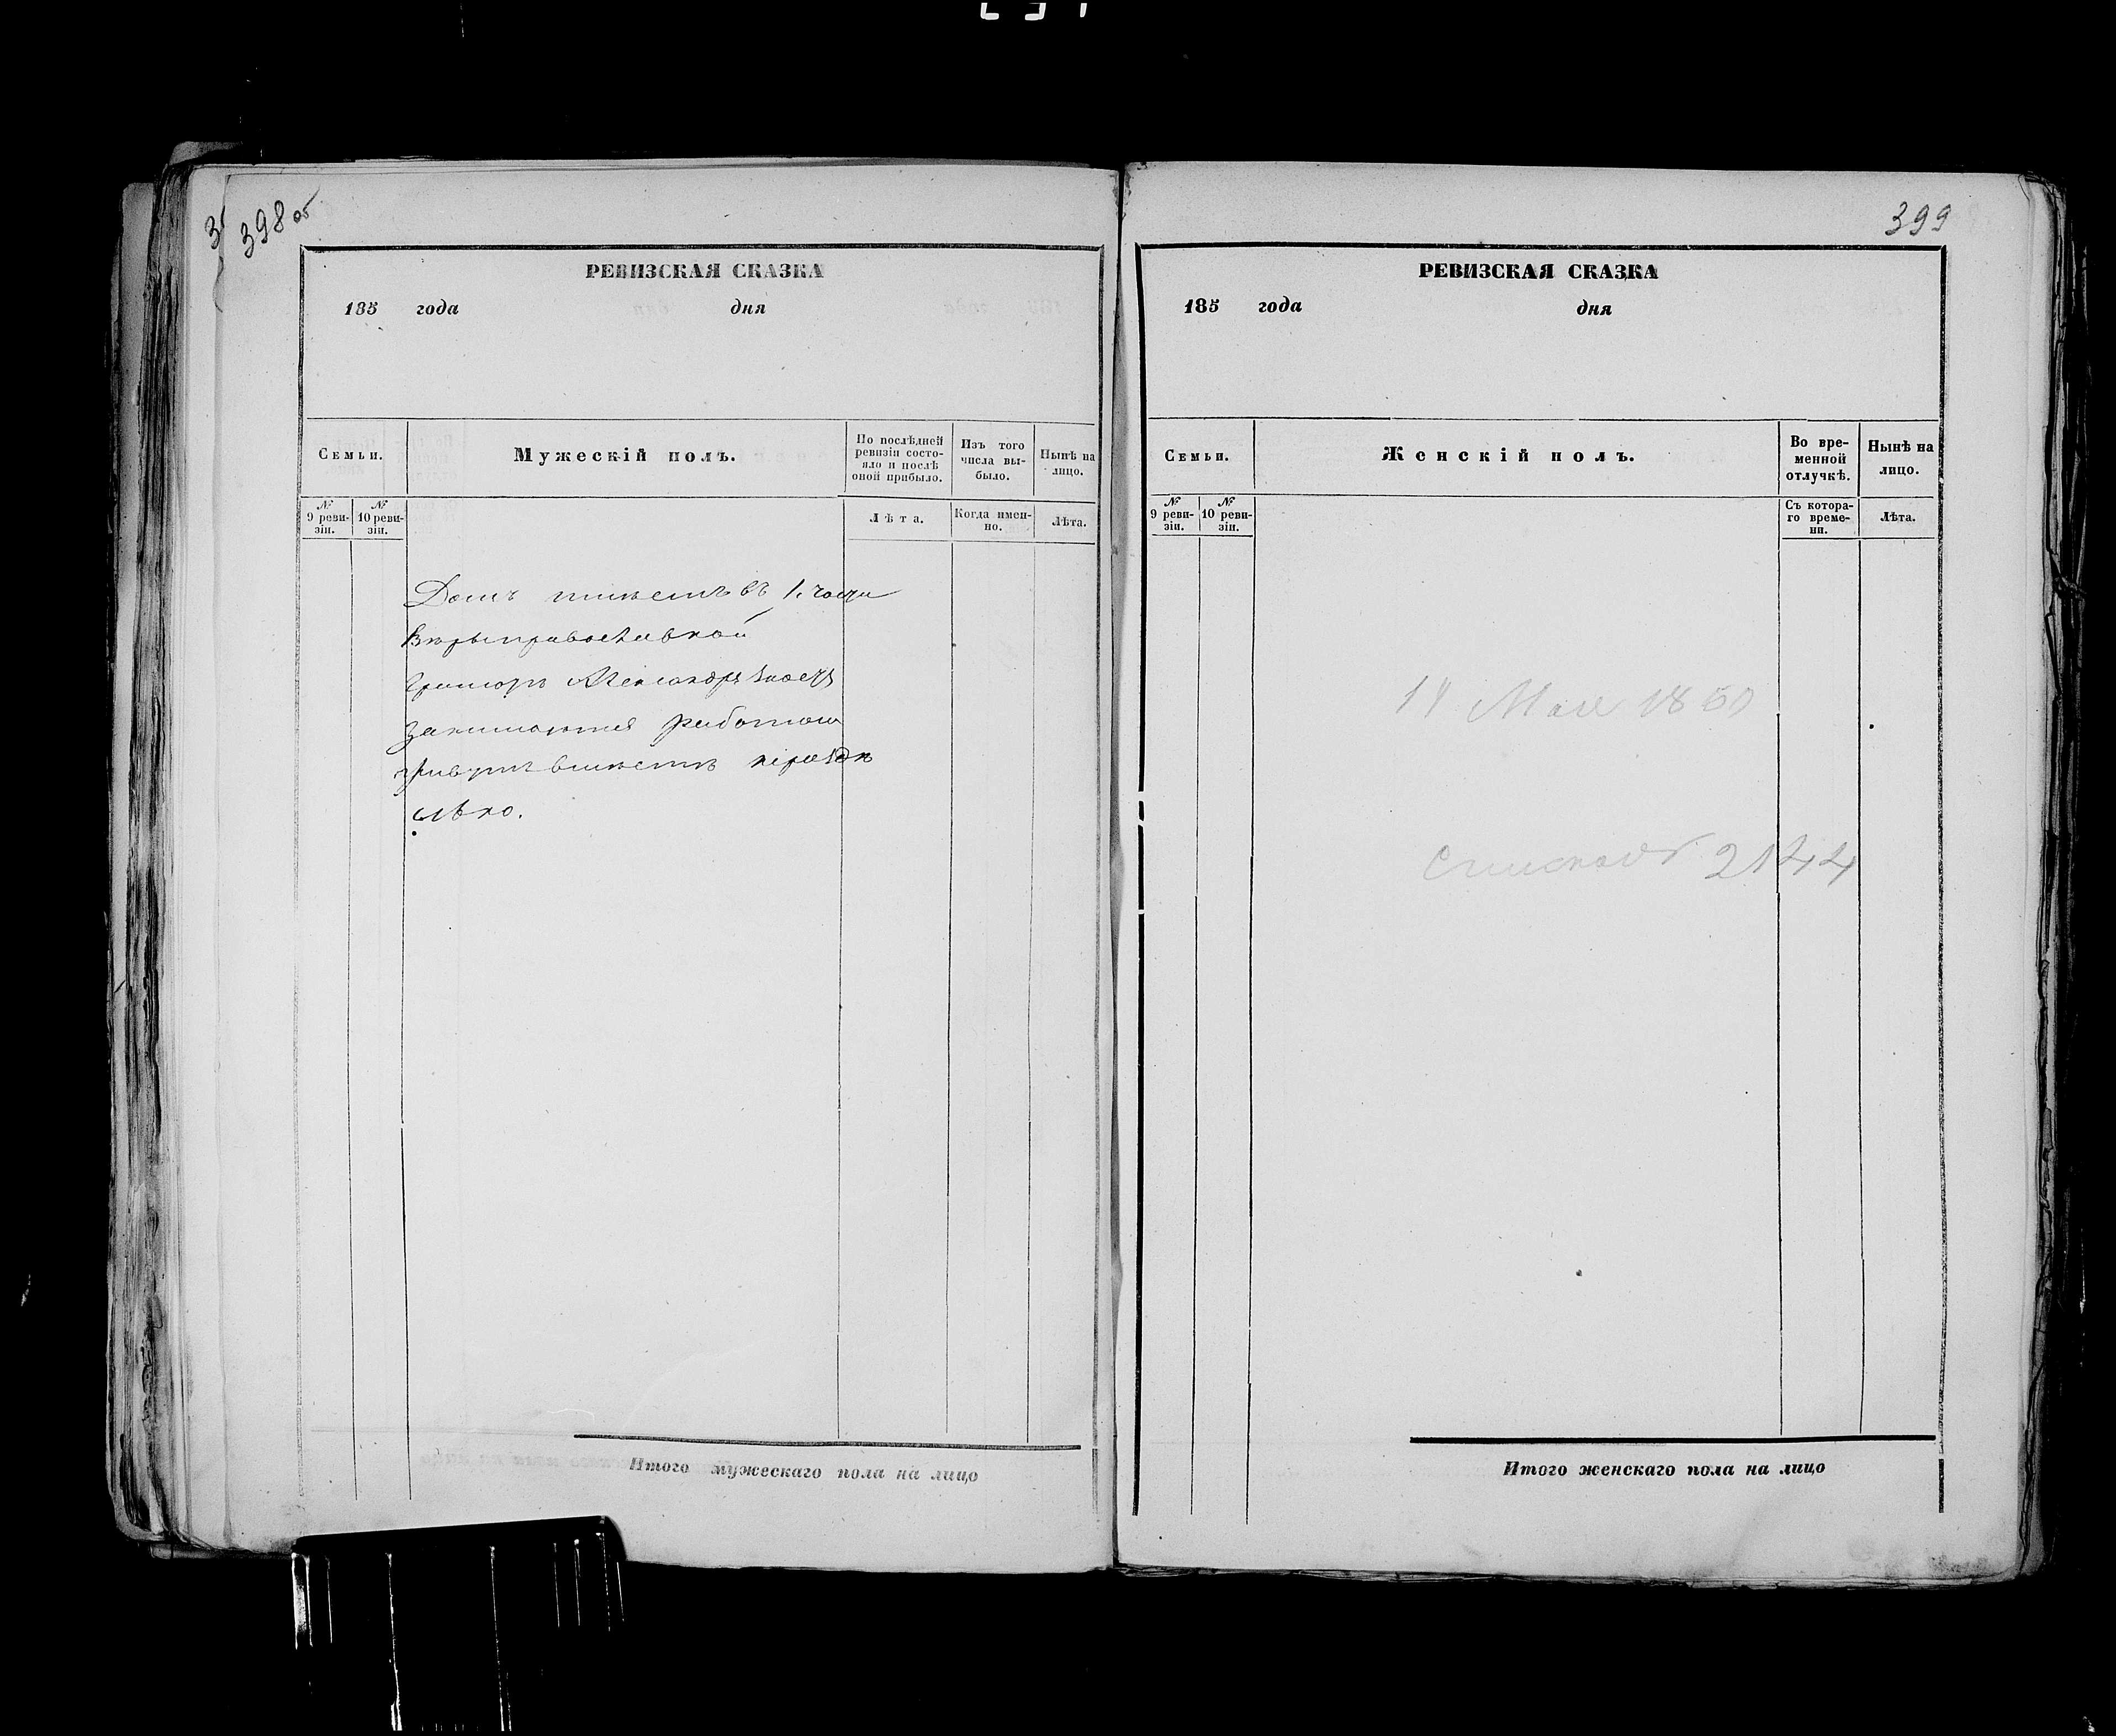 398 об
РЕВИЗСКАЯ СКАЗКА
185 года дня
Семьи.
Мужескій полъ.
По послѣдней ревизіи состояло и послѣ оной прибыло.
Изъ того числа выбыло.
Нынѣ на лицо.
№ 9 ревизіи.
№ 10 ревизіи.
Лѣта.
Когда именно.
Лѣта.
Домъ имѣетъ въ 1. части
Вѣры православной
занимаются работою
живутъ вмѣстѣ
Итого мужескаго пола на лицо
399
РЕВИЗСКАЯ СКАЗКА
185 года дня
Семьи.
Женскій полъ.
Во временной отлучкѣ.
Нынѣ на лицо.
№ 9 ревизіи.
№ 10 ревизіи.
Съ котораго времени.
Лѣта.
Мая 18
2144
Итого женскаго пола на лицо